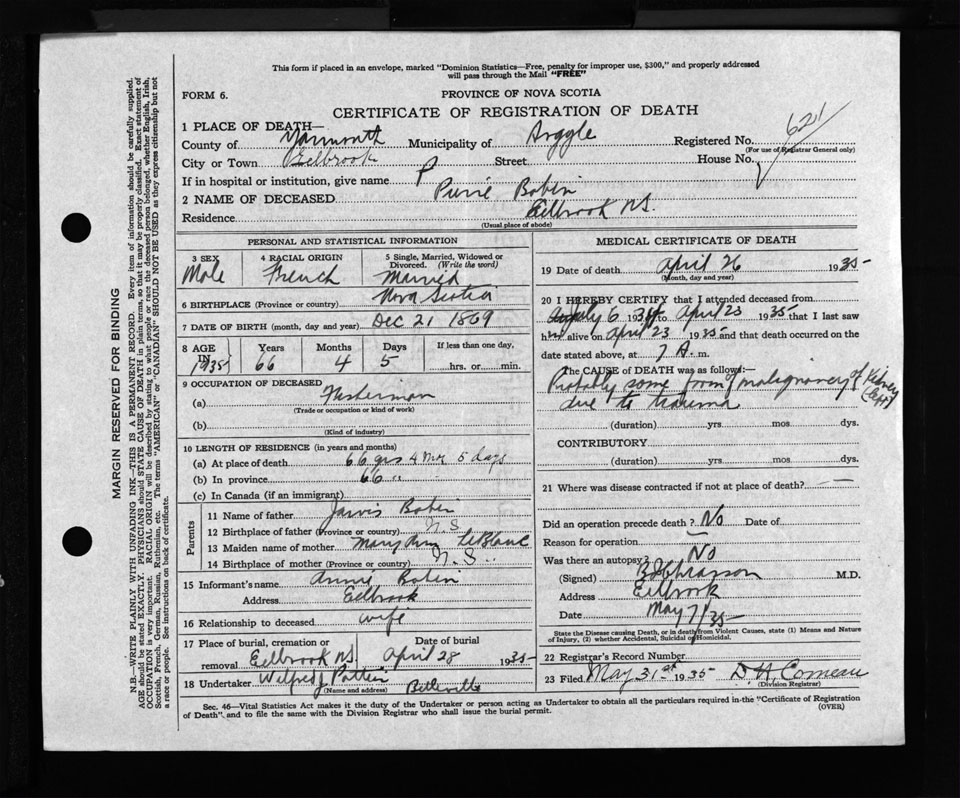 This form if placed in an envelope, marked "Dominion Statistics—Free, penalty for improper use, $300," and properly addressed
will pass through the Mail "FREE"
FORM 6.
PROVINCE OF NOVA SCOTIA
CERTIFICATE OF REGISTRATION OF DEATH
621
1 PLACE OF DEATH—
County of Yarmouth Municipality of Argyle Registered No.
(For use of Registrar General only)
City or Town Eelbrook Street House No.
If in hospital or institution, give name
2 NAME OF DECEASED Pierre Babin
Residence Eelbrook N.S.
(Usual place of abode)
PERSONAL AND STATISTICAL INFORMATION
3 SEX Male
4 RACIAL ORIGIN French
5 Single, Married, Widowed or Divorced. (Write the word) Married
6 BIRTHPLACE (Province or country) Nova Scotia
7 DATE OF BIRTH (month, day and year) Dec 21 1869
8 AGE IN 1935 Years 66 Months 4 Days 5 If less than one day, hrs. or min.
9 OCCUPATION OF DECEASED
(a) Fisherman
(Trade or occupation or kind of work)
(b)
(Kind of industry)
10 LENGTH OF RESIDENCE (in years and months)
(a) At place of death 66 yrs 4 mos 5 days
(b) In province 66 "
(c) In Canada (if an immigrant)
Parents
11 Name of father Jarvis Babin
12 Birthplace of father (Province or country) N.S.
13 Maiden name of mother Mary Ann LeBlanc
14 Birthplace of mother (Province or country) N.S.
15 Informant's name Annie Babin
Address Eelbrook
16 Relationship to deceased wife
17 Place of burial, cremation or removal Eelbrook N.S. Date of burial April 28 1935
18 Undertaker Wilfred J Pottier Belleville
(Name and address)
MEDICAL CERTIFICATE OF DEATH
19 Date of death April 26 1935
(Month, day and year)
20 I HEREBY CERTIFY that I attended deceased from
July 6 1934 to April 23 1935 that I last saw
him alive on April 23 1935 and that death occurred on the
date stated above, at 7 A. m.
The CAUSE of DEATH was as follows:—
Probably some form of malignancy of Kidney (left)
due to trauma
(duration) yrs mos dys.
CONTRIBUTORY
(duration) yrs. mos. dys.
21 Where was disease contracted if not at place of death?
Did an operation precede death? No Date of
Reason for operation
Was there an autopsy? No
(Signed) M.D.
Address Eelbrook
Date May 7/35
State the Disease causing Death, or in death from Violent Causes, state (1) Means and Nature
of Injury, (2) whether Accidental, Suicidal or Homicidal.
22 Registrar's Record Number
23 Filed May 31st 1935 D. H. Comeau
(Division Registrar)
Sec. 46—Vital Statistics Act makes it the duty of the Undertaker or person acting as Undertaker to obtain all the particulars required in the "Certificate of Registration
of Death", and to file the same with the Division Registrar who shall issue the burial permit.
(OVER)
MARGIN RESERVED FOR BINDING
N.B.—WRITE PLAINLY WITH UNFADING INK—THIS IS A PERMANENT RECORD. Every item of information should be carefully supplied.
AGE should be stated EXACTLY. PHYSICIANS should STATE CAUSE OF DEATH in plain terms, so that it may be properly classified. Exact statement of
OCCUPATION is very important. RACIAL ORIGIN will be described by stating to what people or race the deceased person belonged, whether English, Irish,
Scottish, French, German, Russian, Ruthenian, etc. The terms "AMERICAN" or "CANADIAN" SHOULD NOT BE USED as they express citizenship but not
a race or people. See instructions on back of certificate.